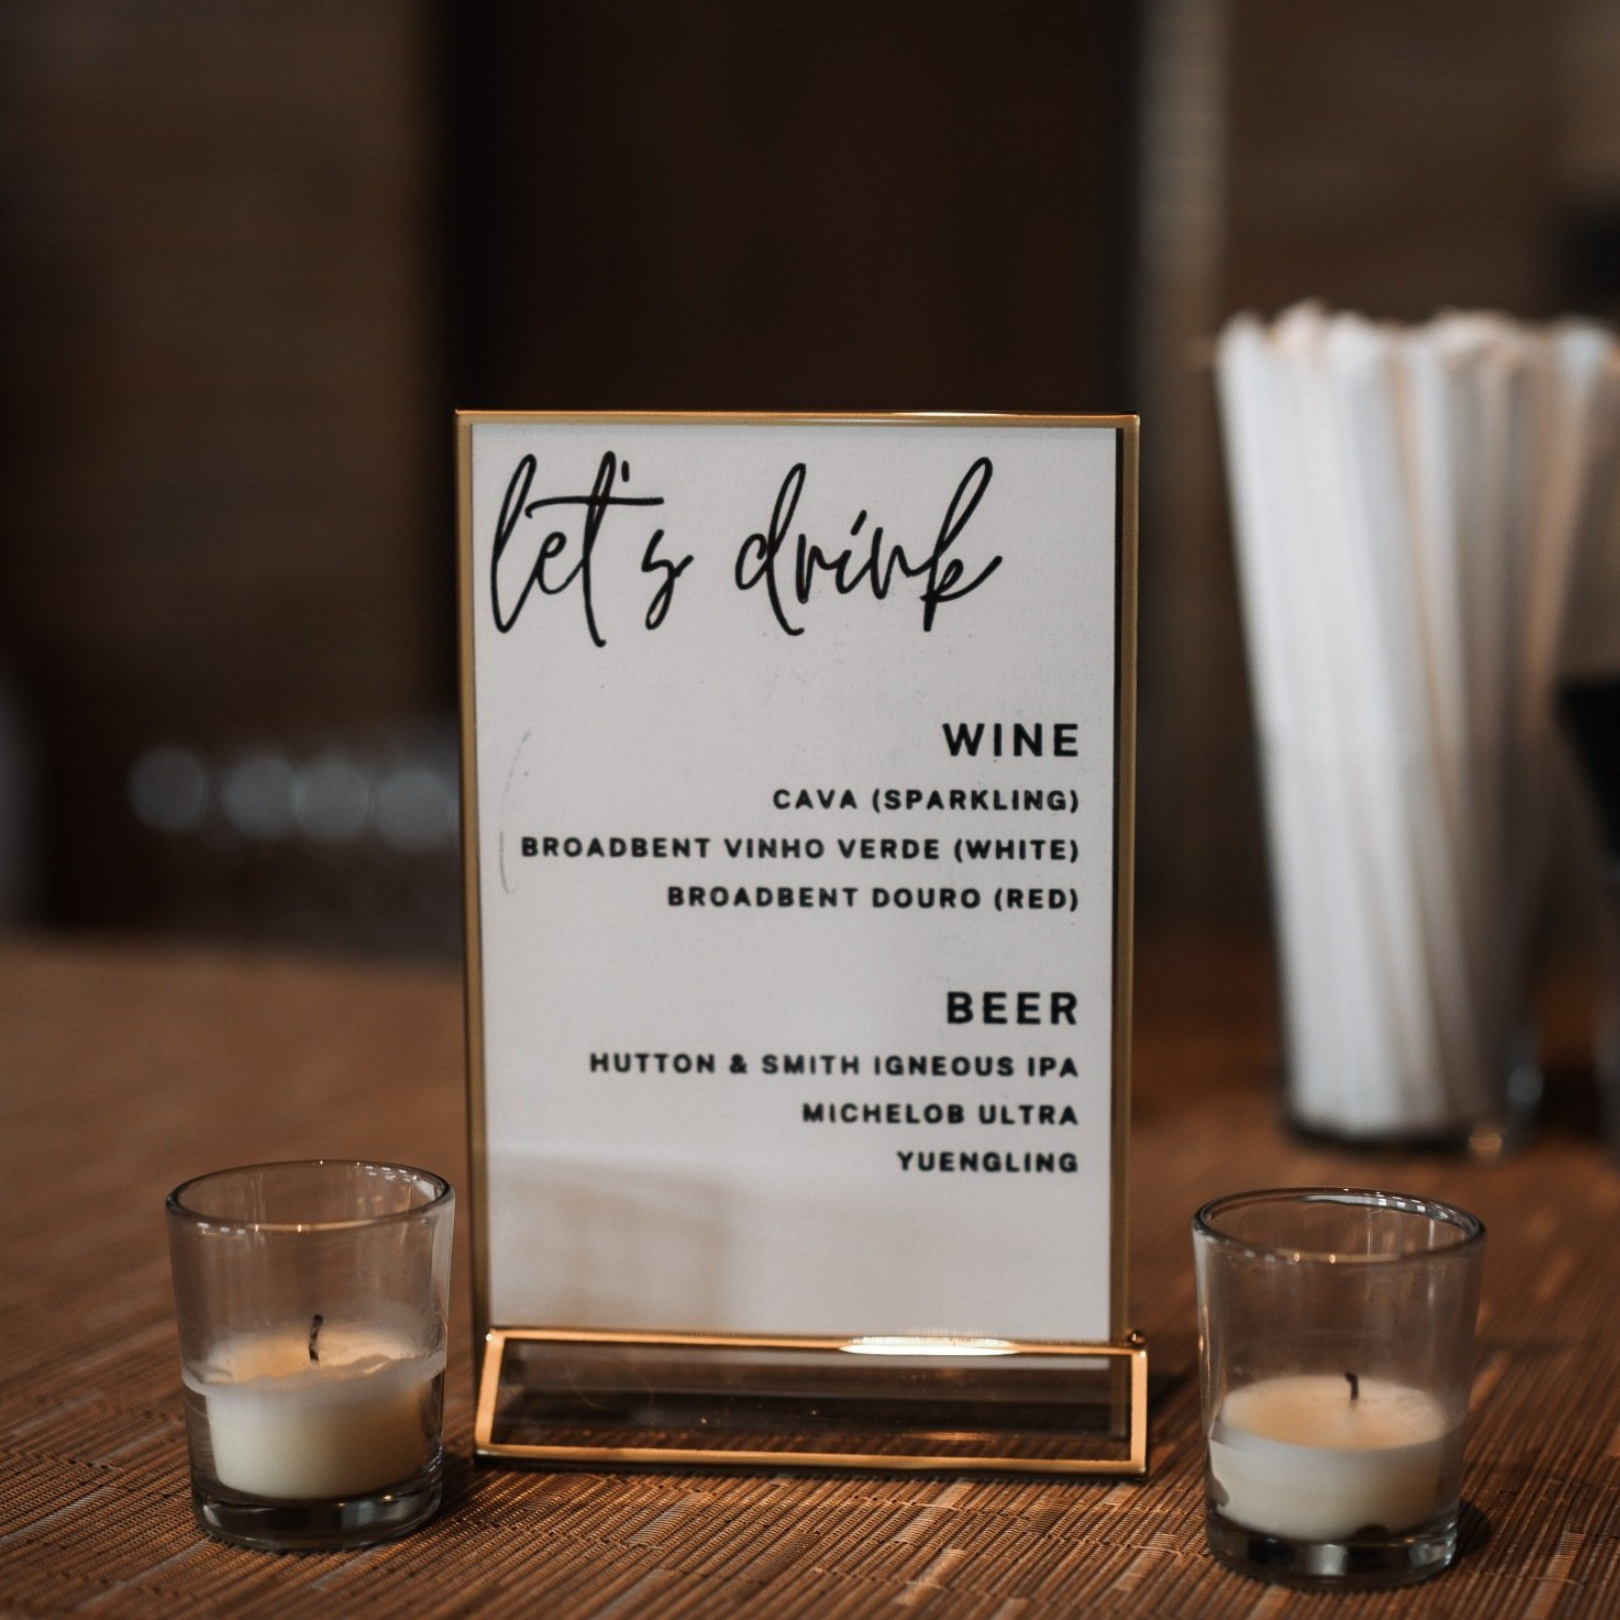 let's drink
WINE
CAVA (SPARKLING)
BROADBENT VINHO VERDE (WHITE)
BROADBENT DOURO (RED)
BEER
HUTTON & SMITH IGNEOUS IPA
MICHELOB ULTRA
YUENGLING